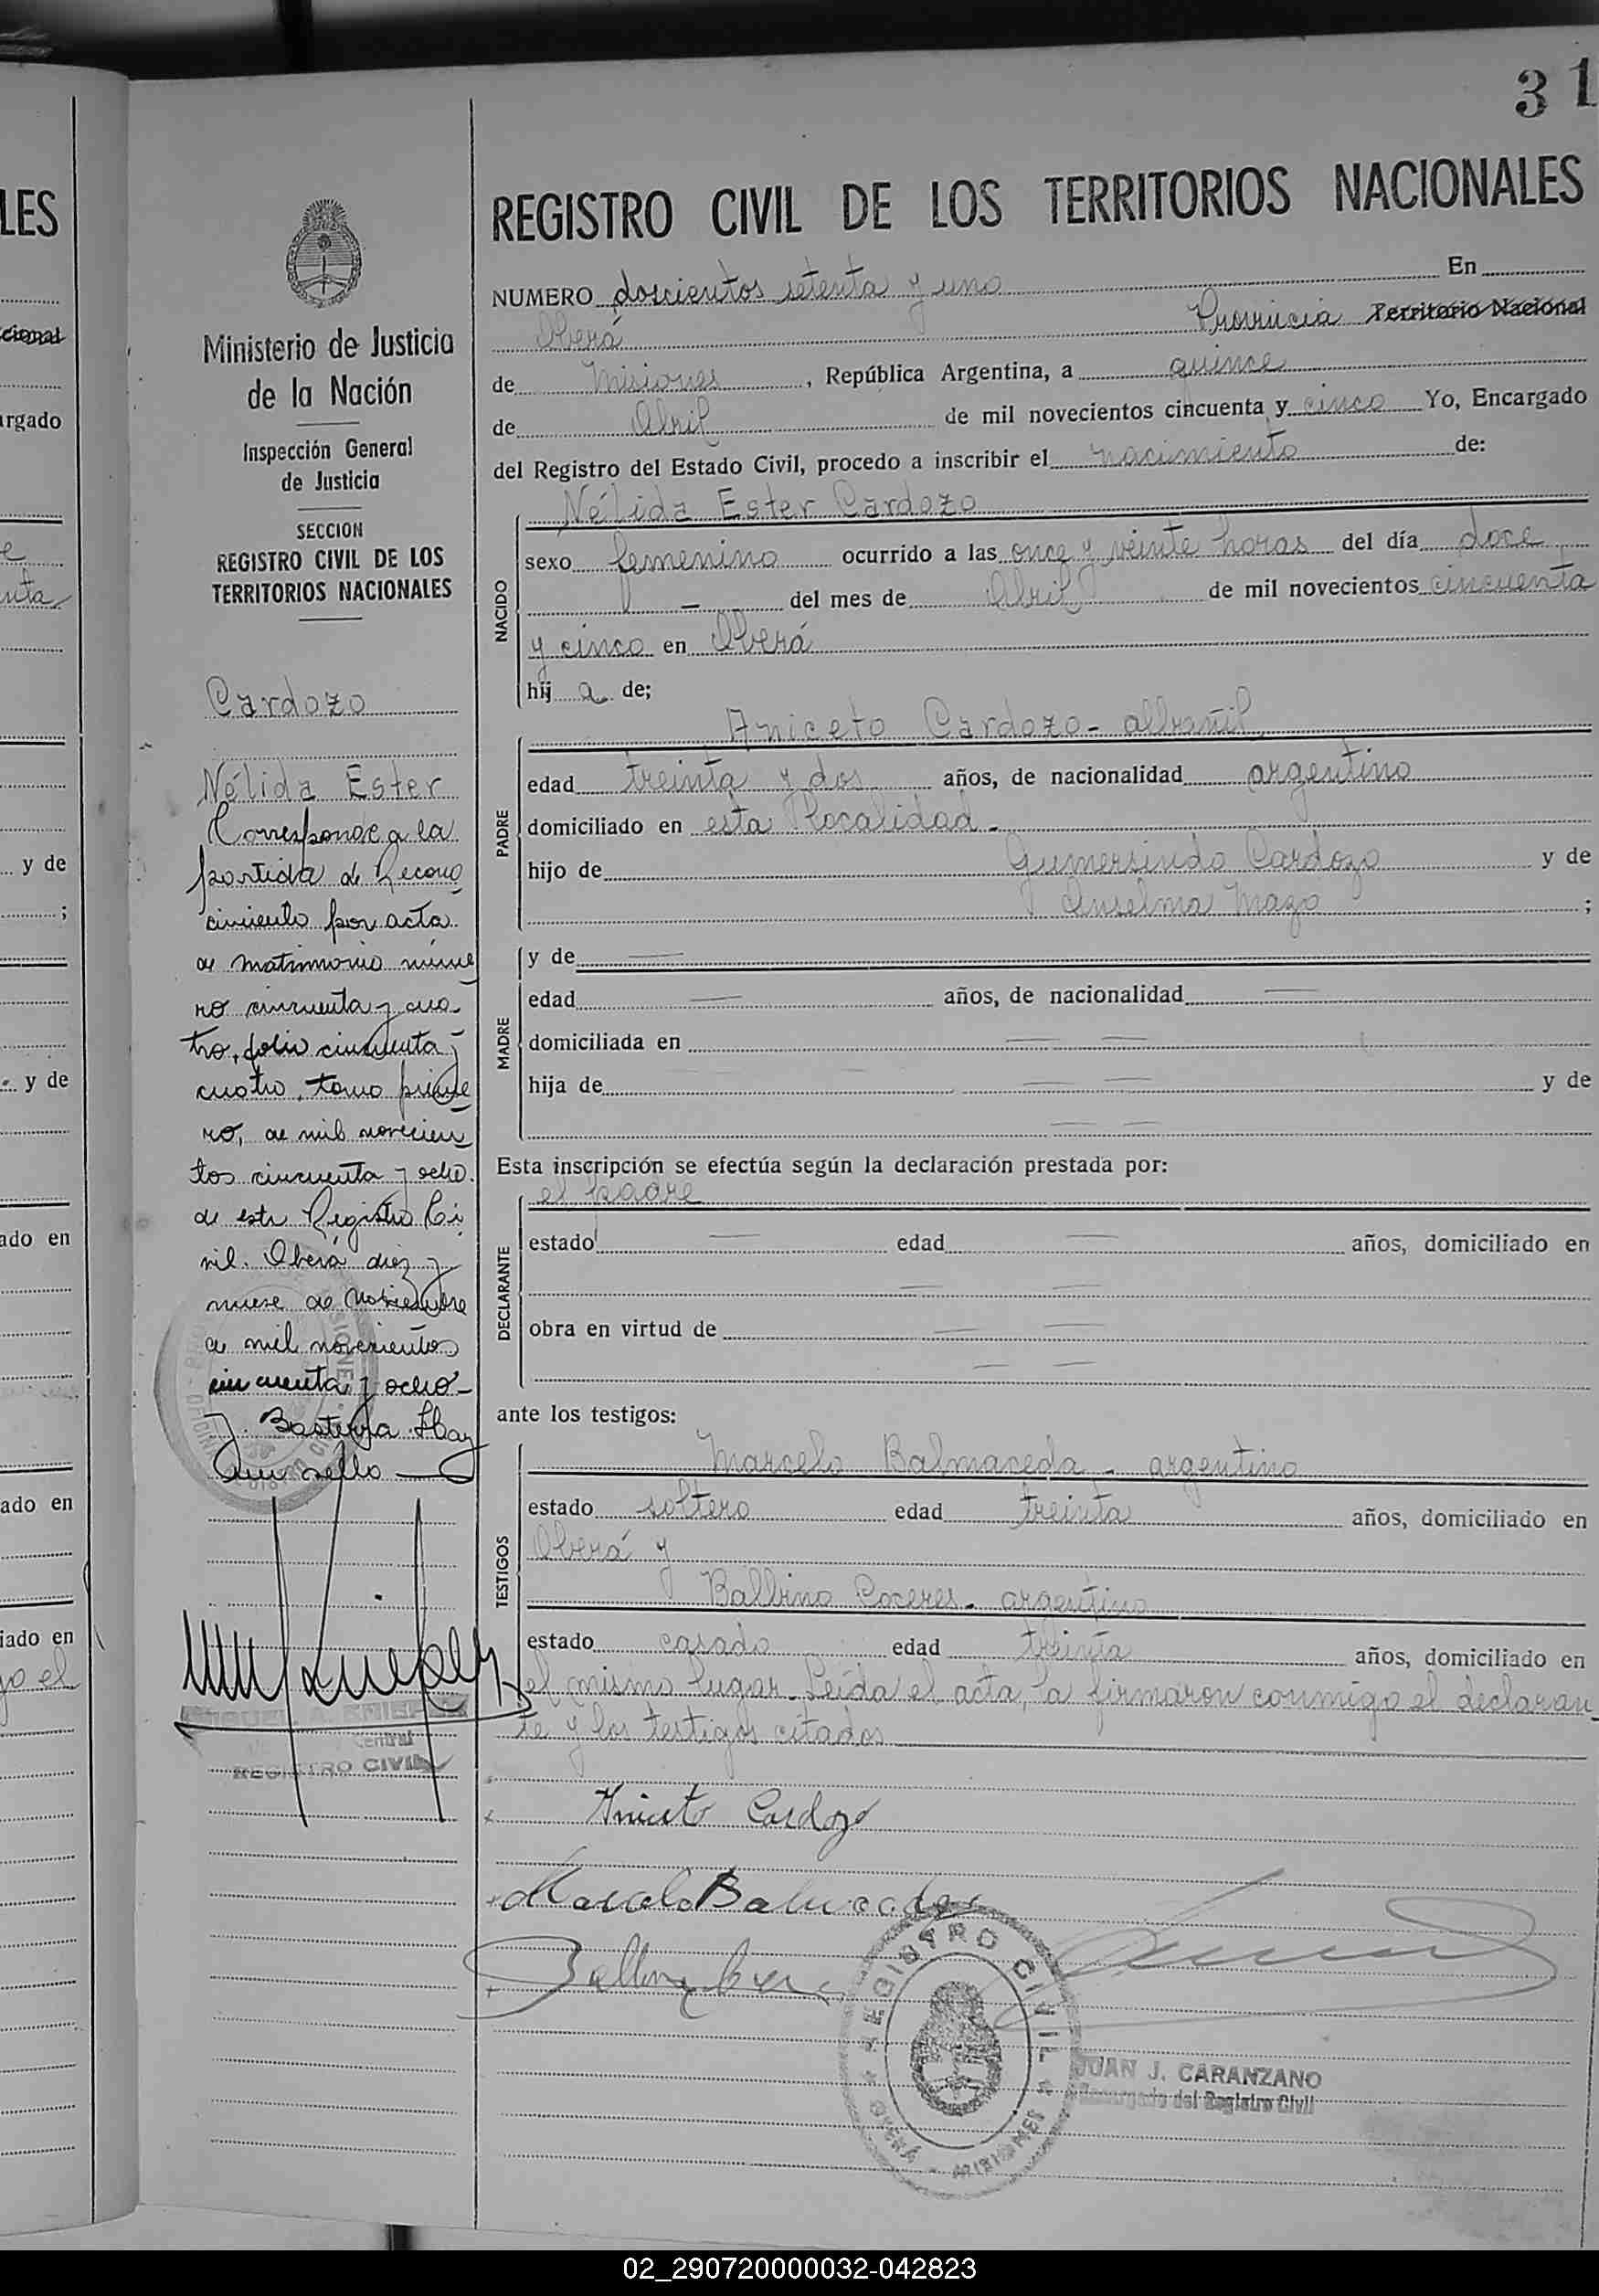 31
REGISTRO CIVIL DE LOS TERRITORIOS NACIONALES
NUMERO doscientos setenta y uno En
Oberá Provincia Territorio Nacional
de Misiones, República Argentina, a quince
de Abril de mil novecientos cincuenta y cinco Yo, Encargado
del Registro del Estado Civil, procedo a inscribir el nacimiento de:
NACIDO
Nélida Ester Cardozo
sexo femenino ocurrido a las once y veinte horas del día doce
— del mes de Abril de mil novecientos cincuenta
y cinco en Oberá
hija de;
PADRE
Aniceto Cardozo - albañil
edad treinta y dos años, de nacionalidad argentino
domiciliado en esta localidad -
hijo de Gumersindo Cardozo y de
Anselma Mazo ;
MADRE
y de —
edad — años, de nacionalidad —
domiciliada en — —
hija de — — y de
— —
Esta inscripción se efectúa según la declaración prestada por:
DECLARANTE
el padre
estado — edad — años, domiciliado en
— —
obra en virtud de — —
— —
ante los testigos:
TESTIGOS
Marcelo Balmaceda - argentino
estado soltero edad treinta años, domiciliado en
Oberá y
Balbino Coceres - argentino
estado casado edad treinta años, domiciliado en
el mismo lugar - Leída el acta, la firmaron conmigo el declaran-
te y los testigos citados
Aniceto Cardozo
Marcelo Balmaceda
REGISTRO CIVIL
OBERÁ - MISIONES
JUAN J. CARANZANO
Encargado del Registro Civil
Ministerio de Justicia
de la Nación
Inspección General
de Justicia
SECCION
REGISTRO CIVIL DE LOS
TERRITORIOS NACIONALES
Cardozo
Nélida Ester
Corresponde a la
partida de Recono
cimiento por acta
de matrimonio núme
ro cincuenta y cua-
tro, folio cincuenta y
cuatro, tomo prime
ro, de mil novecien
tos cincuenta y ocho.
de este Registro Ci
vil. Oberá diez y
nueve de Noviembre
de mil novecientos
cincuenta y ocho -
J. Basterra. Hay
un sello —
REGISTRO CIVIL
LES
cional
argado
y de
;
y de
ado en
ado en
iado en
02_290720000032-042823